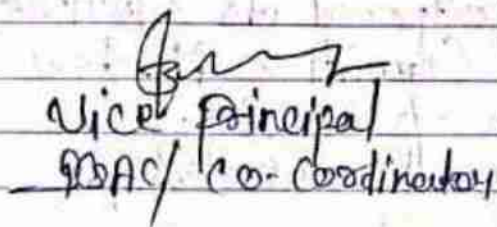 Vice Principal
IQAC/ Co-Coordinator